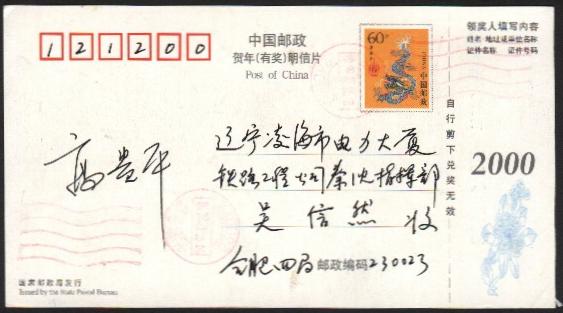 121200
中国邮政
贺年(有奖)明信片
Post of China
60分
中国邮政
CHINA
领奖人填写内容
姓名 地址或单位名称
证件名称 证件号码
辽宁凌海市电力大厦
铁路工程公司秦沈指挥部
吴信然 收
合肥四局 邮政编码 230023
自行剪下兑奖无效
2000
国家邮政局发行
Issued by the State Postal Bureau